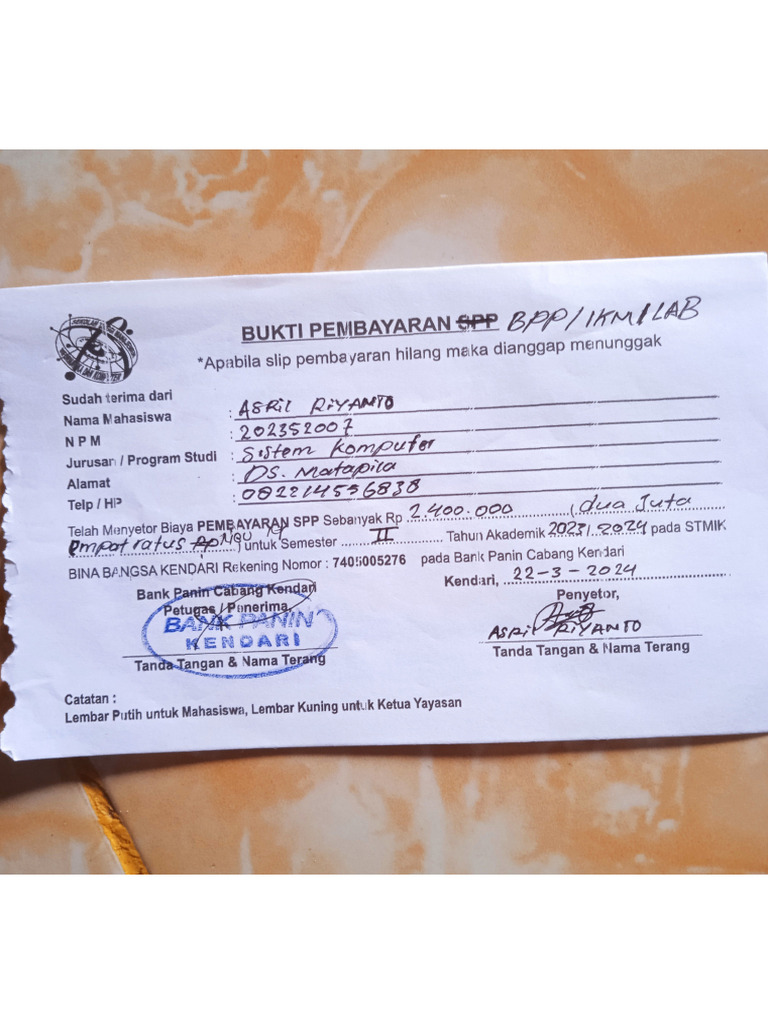 BUKTI PEMBAYARAN SPP BPP/IKM/LAB
*Apabila slip pembayaran hilang maka dianggap menunggak
Sudah terima dari
Nama Mahasiswa : ASRIL RIYANTO
N P M : 202352007
Jurusan / Program Studi : Sistem Komputer
Alamat : DS. Matapila
Telp / HP : 082214556838
Telah Menyetor Biaya PEMBAYARAN SPP Sebanyak Rp 2.400.000 (dua Juta
Empat ratus Rp) untuk Semester II Tahun Akademik 2023/2024 pada STMIK
BINA BANGSA KENDARI Rekening Nomor : 7405005276 pada Bank Panin Cabang Kendari
Kendari, 22-3-2024
Bank Panin Cabang Kendari
Petugas / Penerima,
BANK PANIN
KENDARI
Tanda Tangan & Nama Terang
Penyetor,
ASRIL RIYANTO
Tanda Tangan & Nama Terang
Catatan :
Lembar Putih untuk Mahasiswa, Lembar Kuning untuk Ketua Yayasan